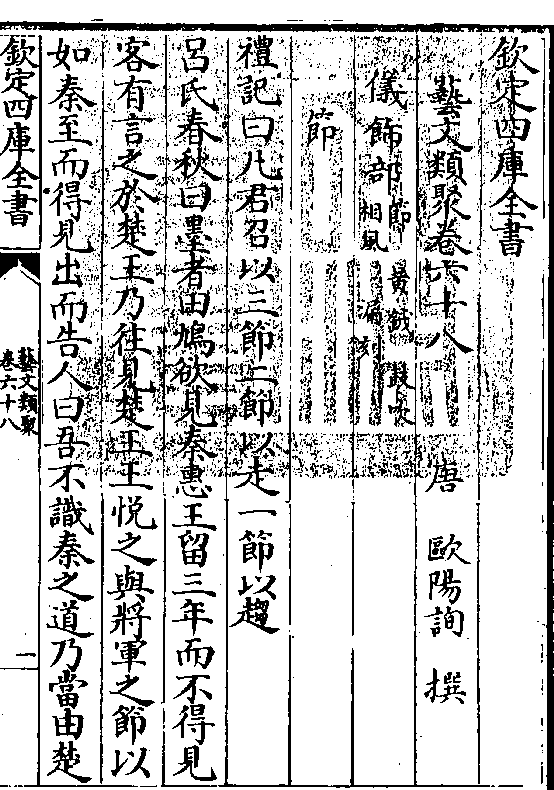 欽定四庫全書
藝文類聚卷六十八
唐 歐陽詢 撰
儀飾部節 黃鉞 鼓吹 相風 漏刻
節
禮記曰凡君召以三節二節以走一節以趨
呂氏春秋曰墨者田鳩欲見秦惠王留三年而不得見
客有言之於楚王乃往見楚王王悅之與將軍之節以
如秦至而得見出而告人曰吾不識秦之道乃當由楚
欽定四庫全書
藝文類聚
卷六十八
一